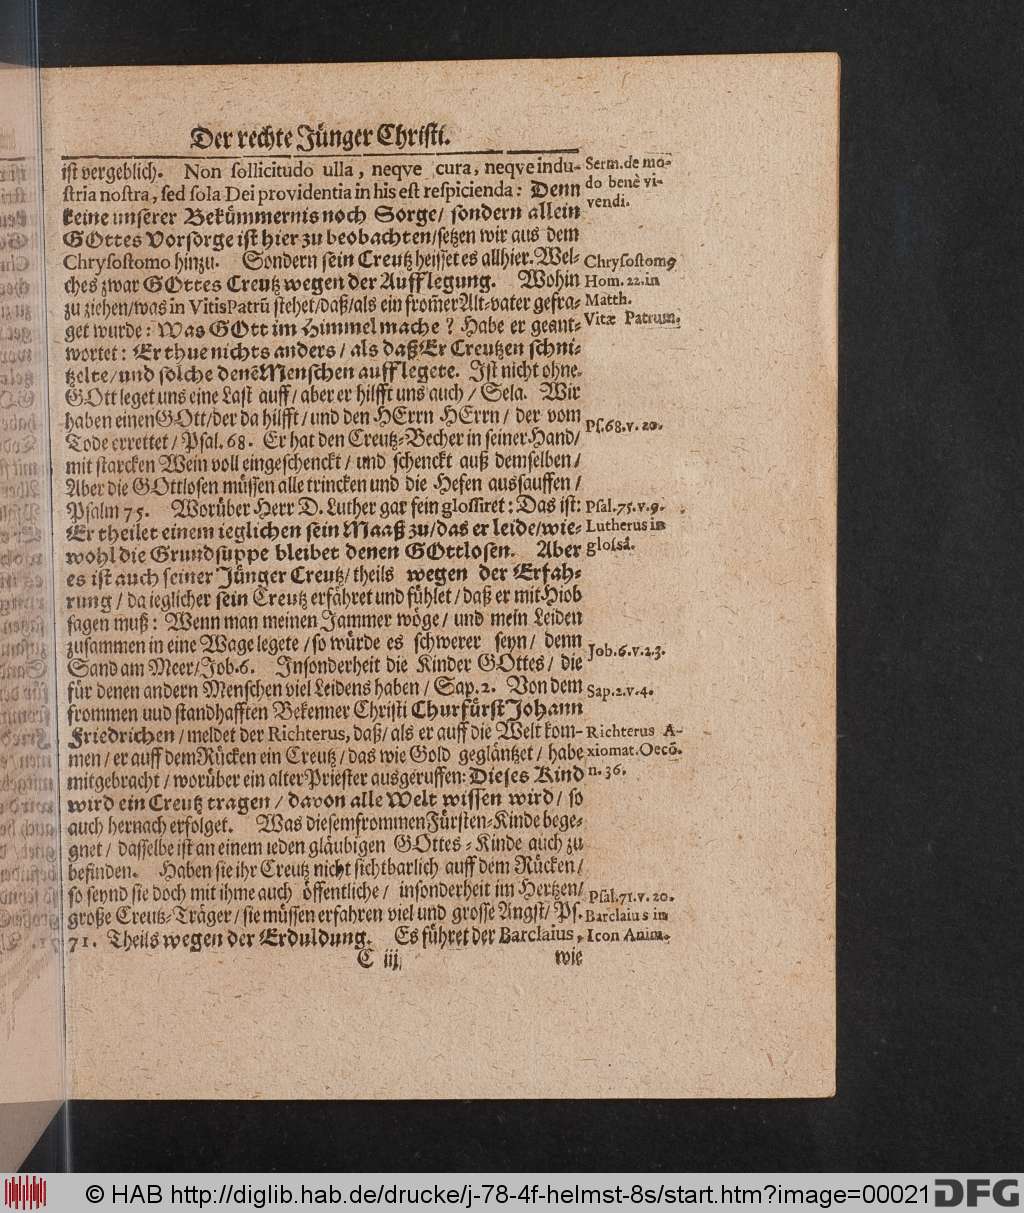 Der rechte Jünger Christi.
ist vergeblich. Non sollicitudo ulla, neqve cura, neqve indu-
stria nostra, sed sola Dei providentia in his est respicienda: Denn
keine unserer Bekümmernis noch Sorge/ sondern allein
GOttes Vorsorge ist hier zu beobachten/setzen wir aus dem
Chrysostomo hinzu. Sondern sein Creutz heisset es allhier. Wel-
ches zwar GOttes Creutz wegen der Aufflegung. Wohin
zu ziehen/was in Vitis Patrũ stehet/daß/als ein from̃er Alt-vater gefra-
get wurde: Was GOtt im Himmel mache? Habe er geant-
wortet: Er thue nichts anders/ als daß Er Creutzen schni-
tzelte/und solche denẽ Menschen aufflegete. Ist nicht ohne.
GOtt leget uns eine Last auff/ aber er hilfft uns auch/ Sela. Wir
haben einen GOtt/der da hilfft/und den HErrn HErrn/ der vom
Tode errettet/ Psal. 68. Er hat den Creutz-Becher in seiner Hand/
mit starcken Wein voll eingeschenckt/ und schenckt auß demselben/
Aber die GOttlosen müssen alle trincken und die Hefen aussauffen/
Psalm 75. Worüber Herr D. Luther gar fein glossiret: Das ist:
Er theilet einem ieglichen sein Maaß zu/das er leide/wie-
wohl die Grundsuppe bleibet denen GOttlosen. Aber
es ist auch seiner Jünger Creutz/theils wegen der Erfah-
rung/ da ieglicher sein Creutz erfähret und fühlet/ daß er mit Hiob
sagen muß: Wenn man meinen Jammer wöge/ und mein Leiden
zusammen in eine Wage legete/so würde es schwerer seyn/ denn
Sand am Meer/Job. 6. Insonderheit die Kinder GOttes/ die
für denen andern Menschen viel Leidens haben/ Sap. 2. Von dem
frommen uud standhafften Bekenner Christi Churfürst Johann
Friedrichen/ meldet der Richterus, daß/als er auff die Welt kom-
men/ er auff dem Rücken ein Creutz/das wie Gold gegläntzet/ habe
mitgebracht/ worüber ein alter Priester ausgeruffen: Dieses Kind
wird ein Creutz tragen/ davon alle Welt wissen wird/ so
auch hernach erfolget. Was diesem frommen Fürsten-Kinde bege-
gnet/ dasselbe ist an einem ieden gläubigen GOttes-Kinde auch zu
befinden. Haben sie ihr Creutz nicht sichtbarlich auff dem Rücken/
so seynd sie doch mit ihme auch öffentliche/ insonderheit im Hertzen/
große Creutz-Träger/ sie müssen erfahren viel und grosse Angst/ Ps.
71. Theils wegen der Erduldung. Es führet der Barclaius,
C iij
wie
Serm. de mo-
do benè vi-
vendi.
Chrysostomꝰ
Hom. 22. in
Matth.
Vitæ Patrum.
Ps. 68. v. 20.
Psal. 75. v. 9.
Lutherus in
glossâ.
Job. 6. v. 2. 3.
Sap. 2. v. 4.
Richterus A-
xiomat. Oecõ.
n. 36.
Psal. 71. v. 20.
Barclaius in
Icon Anim.
© HAB http://diglib.hab.de/drucke/j-78-4f-helmst-8s/start.htm?image=00021
DFG